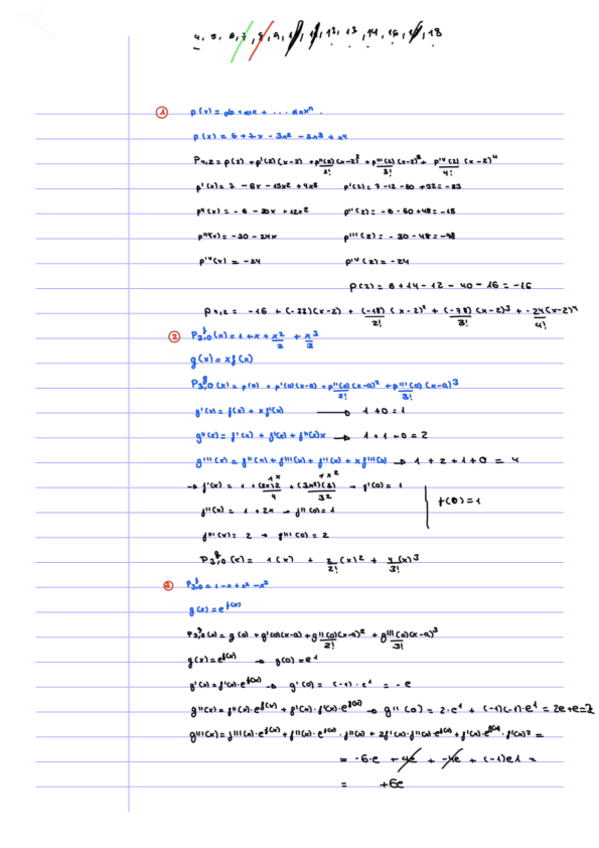 4, 5, 6, 7, 8, 9, 12, 13, 14, 15, 18
① p(x) = a0 + a1x + ... anxⁿ.
p(x) = 6 + 7x - 3x² - 5x³ + x⁴
P4,2 = p(2) + p'(2)(x-2) + p''(2)(x-2)²/2! + p'''(2)(x-2)³/3! + pᴵⱽ(2)(x-2)⁴/4!
p'(x) = 7 - 6x - 15x² + 4x³ p'(2) = 7 - 12 - 60 + 32 = -33
p''(x) = -6 - 30x + 12x² p''(2) = -6 - 60 + 48 = -18
p'''(x) = -30 - 24x p'''(2) = -30 - 48 = -78
pᴵⱽ(x) = -24 pᴵⱽ(2) = -24
p(2) = 6 + 14 - 12 - 40 - 16 = -16
P4,2 = -16 + (-33)(x-2) + (-18)/2! (x-2)² + (-78)/3! (x-2)³ + -24(x-2)⁴/4!
② P3,0ᶠ(x) = 1 + x + x²/2 + x³/3
g(x) = xf(x)
P3,0ᵍ(x) = p(0) + p'(0)(x-a) + p''(0)(x-a)²/2! + p'''(0)(x-a)³/3!
g'(x) = f(x) + xf'(x) → 1 + 0 = 1
g''(x) = f'(x) + f'(x) + f''(x)x → 1 + 1 + 0 = 2
g'''(x) = f''(x) + f'''(x) + f''(x) + xf'''(x) → 1 + 2 + 1 + 0 = 4
→ f'(x) = 1 + (2x)2/4 + (3x²)(3)/3² → f'(0) = 1 f(0) = 1
f''(x) = 1 + 2x → f''(0) = 1
f'''(x) = 2 → f'''(0) = 2
P3,0ᵍ(x) = 1(x) + 2/2! (x)² + 4(x)³/3!
③ P3,0ᶠ = 1 - x + x² - x³
g(x) = e^f(x)
P3,0ᵍ(x) = g(0) + g'(0)(x-a) + g''(0)(x-a)²/2! + g'''(0)(x-a)³/3!
g(x) = e^f(x) → g(0) = e¹
g'(x) = f'(x)·e^f(x) → g'(0) = (-1)·e¹ = -e
g''(x) = f''(x)·e^f(x) + f'(x)·f'(x)·e^f(x) → g''(0) = 2·e¹ + (-1)(-1)·e¹ = 2e + e = 3
g'''(x) = f'''(x)·e^f(x) + f''(x)·e^f(x)·f'(x) + 2f'(x)·f''(x)·e^f(x) + f'(x)·e^f(x)·f'(x)² =
= -6·e + 4e + -4e + (-1)e1 =
= +6e